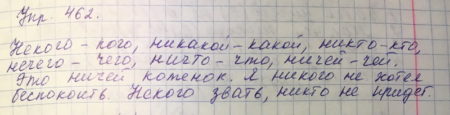 Упр. 462.
Некого - кого, никакой - какой, никто - кто,
нечего - чего, ничто - что, ничей - чей.
Это ничей котенок. Я никого не хотел
беспокоить. Некого звать, никто не придет.